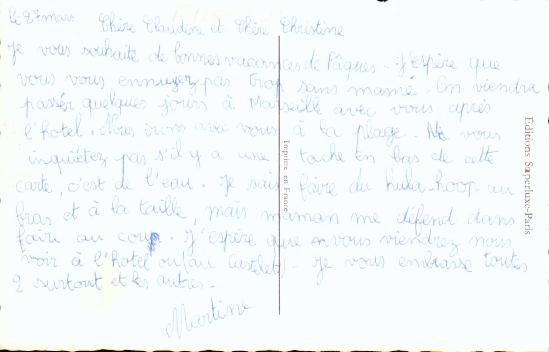 le 27 mars Chère Claudine et Chère Christine
Je vous souhaite de bonnes vacances de Pâques - J'espère que
vous vous ennuyez pas trop sans mamé. On viendra
passer quelques jours à Marseille avec vous après
l'hotel. Nous irons avec vous à la plage. Ne vous
inquiétez pas s'il y a une tache en bas de cette
carte, c'est de l'eau. Je sais faire du hula-hoop au
bras et à la taille, mais maman me défend d'en
faire au cou. J'espère que vous viendrez nous
voir à l'hotel ou (au Castelet). Je vous embrasse toutes
2 surtout et les autres.
Martine
Imprimé en France
Editions Superluxe-Paris